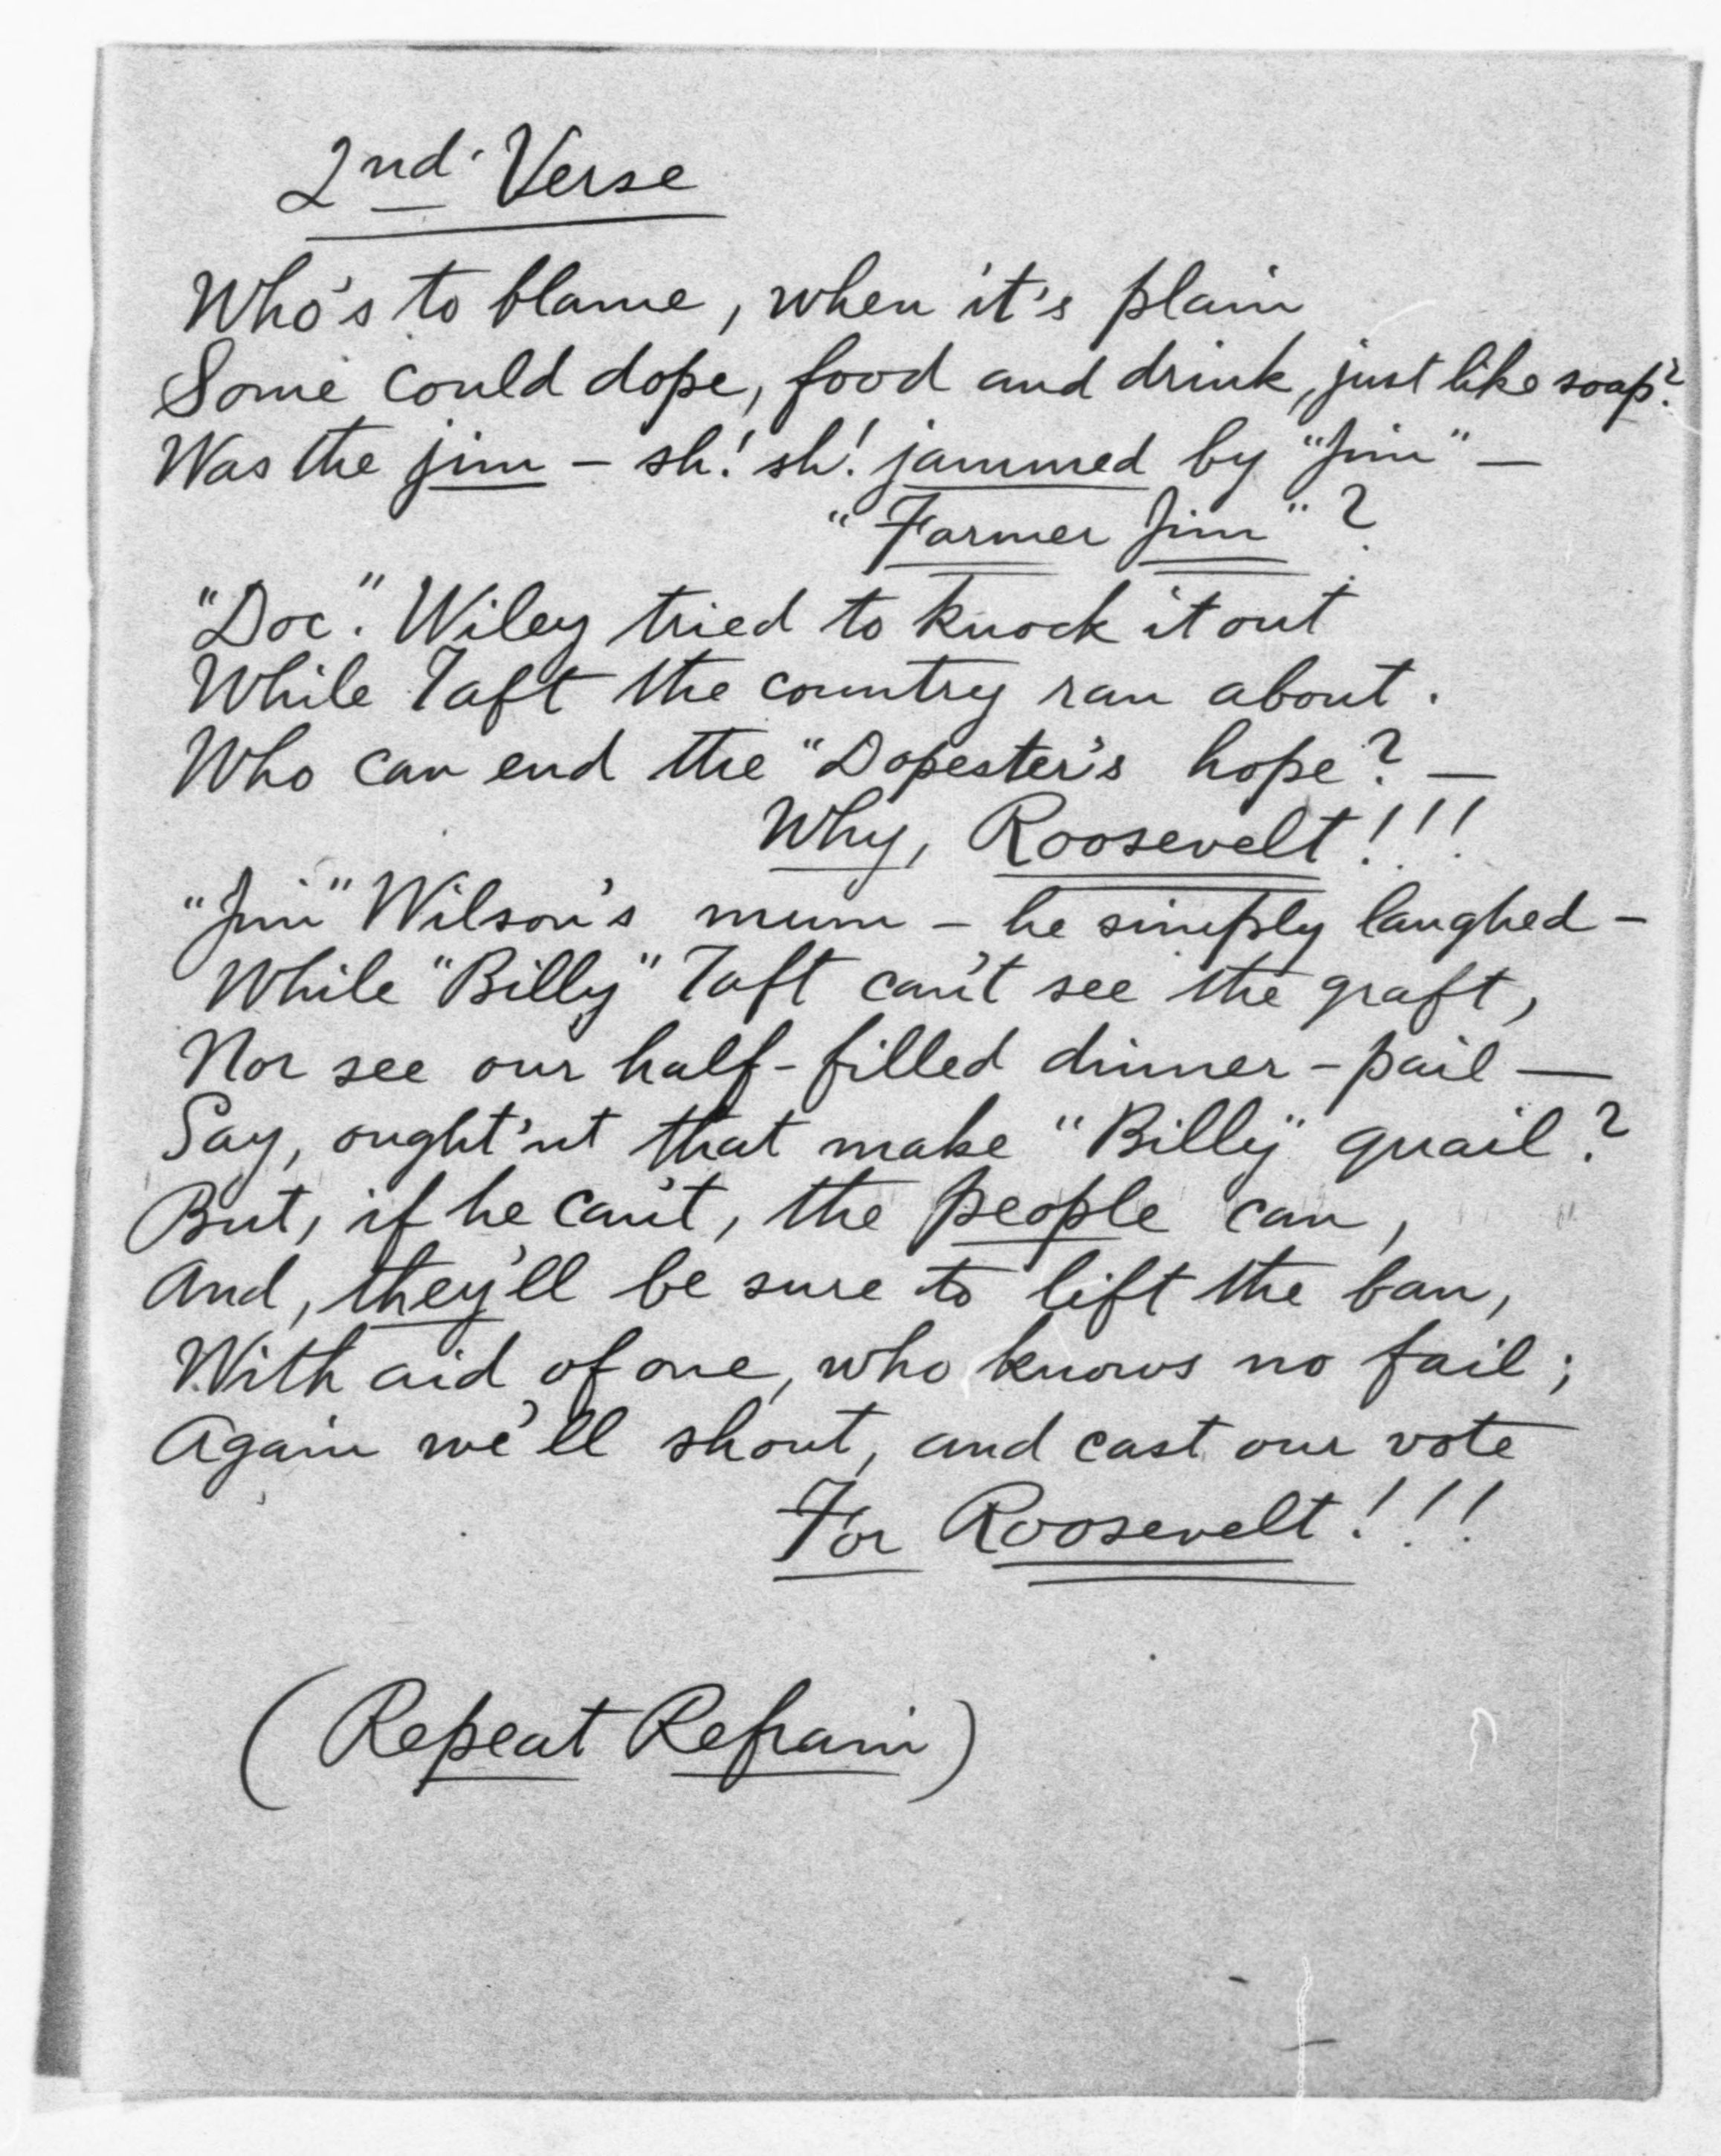 2nd. Verse
Who's to blame, when it's plain
Some could dope, food and drink, just like soap?
Was the jim – sh! sh! jammed by "Jim" —
"Farmer Jim"?
"Doc." Wiley tried to knock it out
While Taft the country ran about.
Who can end the "Dopester's hope? —
Why, Roosevelt!!!
"Jim" Wilson's mum – he simply laughed –
While "Billy" Taft can't see the graft,
Nor see our half-filled dinner-pail —
Say, ought'nt that make "Billy" quail?
But, if he can't, the people can,
And, they'll be sure to lift the ban,
With aid of one, who knows no fail;
Again we'll shout, and cast our vote
For Roosevelt!!!
(Repeat Refrain)